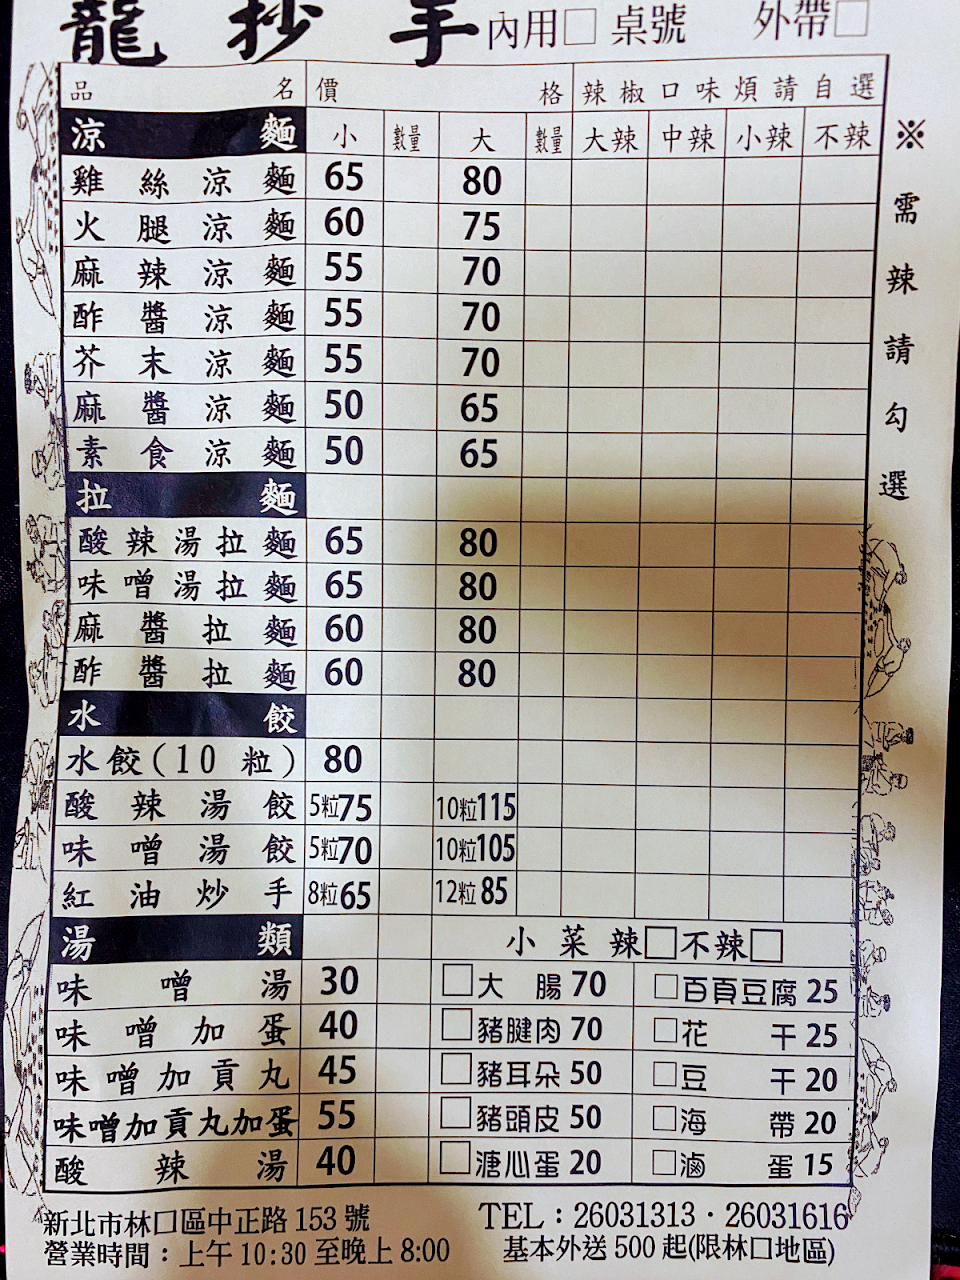 龍抄手 內用□ 桌號 外帶□
品名 價格 辣椒口味煩請自選
涼麵 小 數量 大 數量 大辣 中辣 小辣 不辣
雞絲涼麵 65 80
火腿涼麵 60 75
麻辣涼麵 55 70
酢醬涼麵 55 70
芥末涼麵 55 70
麻醬涼麵 50 65
素食涼麵 50 65
拉麵
酸辣湯拉麵 65 80
味噌湯拉麵 65 80
麻醬拉麵 60 80
酢醬拉麵 60 80
水餃
水餃(10粒) 80
酸辣湯餃 5粒75 10粒115
味噌湯餃 5粒70 10粒105
紅油炒手 8粒65 12粒85
湯類 小菜 辣□不辣□
味噌湯 30 □大腸 70 □百頁豆腐 25
味噌加蛋 40 □豬腱肉 70 □花干 25
味噌加貢丸 45 □豬耳朵 50 □豆干 20
味噌加貢丸加蛋 55 □豬頭皮 50 □海帶 20
酸辣湯 40 □溏心蛋 20 □滷蛋 15
※需辣請勾選
新北市林口區中正路153號 TEL：26031313·26031616
營業時間：上午10:30至晚上8:00 基本外送500起(限林口地區)